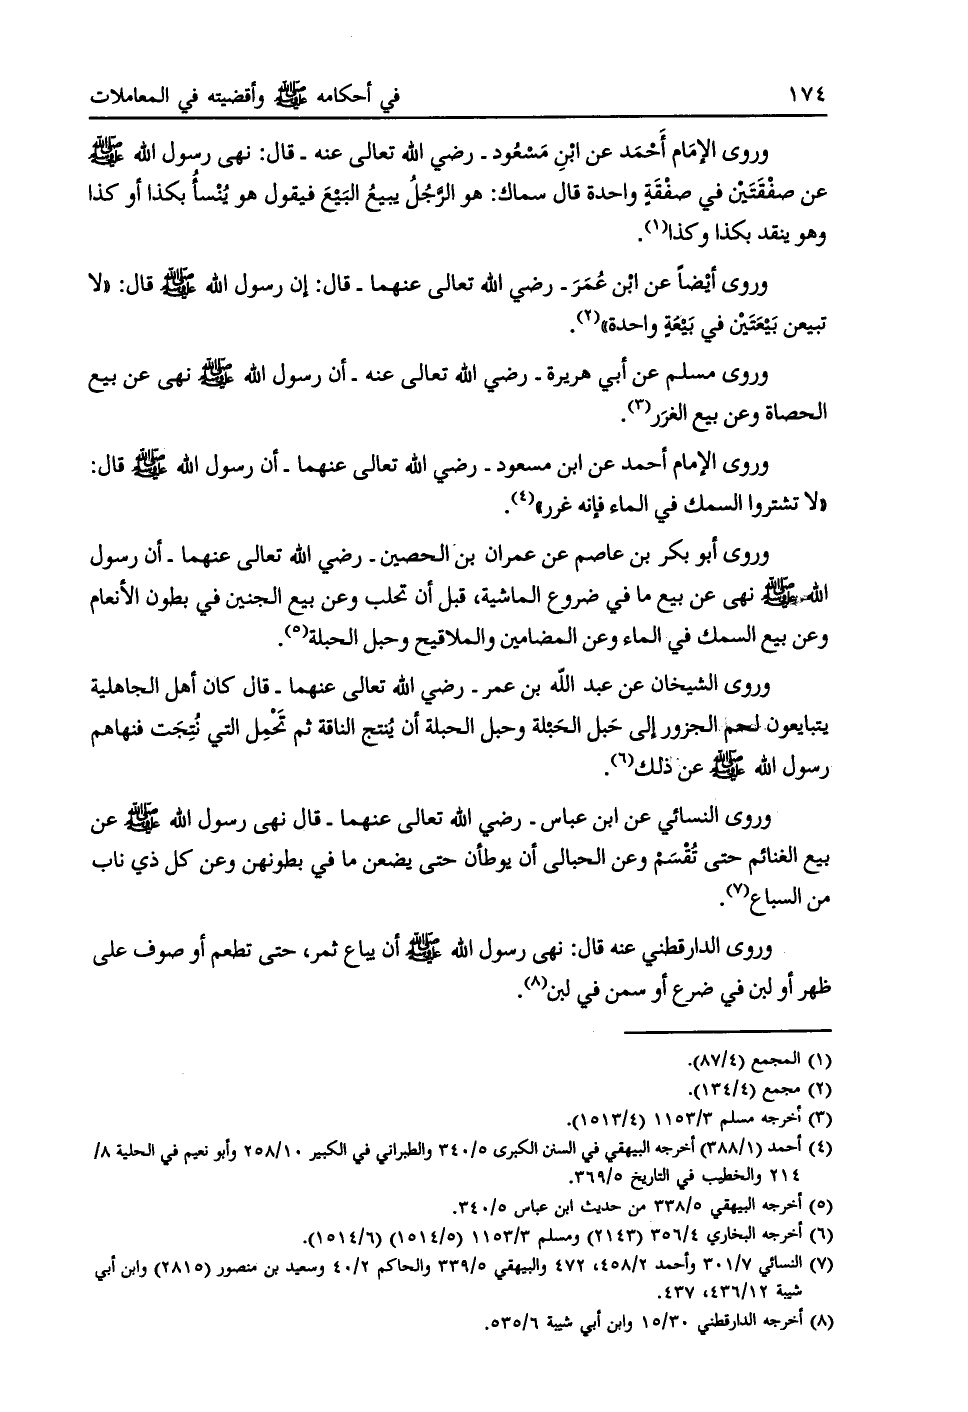 ١٧٤ في أحكامه ﷺ وأقضيته في المعاملات
وروى الإمَام أَحْمَد عن ابْنِ مَسْعُود ـ رضي الله تعالى عنه ـ قال: نهى رسول الله ﷺ
عن صفْقَتَيْن في صفْقَةٍ واحدة قال سماك: هو الرَّجُلُ يبيعُ البَيْعَ فيقول هو يُنْسأُ بكذا أو كذا
وهو ينقد بكذا وكذا(١).
وروى أيْضاً عن ابْن عُمَرَ ـ رضي الله تعالى عنهما ـ قال: إن رسول الله ﷺ قال: «لا
تبيعن بَيْعَتَيْن في بَيْعَةٍ واحدة»(٢).
وروى مسلم عن أبي هريرة ـ رضي الله تعالى عنه ـ أن رسول الله ﷺ نهى عن بيع
الحصاة وعن بيع الغرَر(٣).
وروى الإمام أحمد عن ابن مسعود ـ رضي الله تعالى عنهما ـ أن رسول الله ﷺ قال:
«لا تشتروا السمك في الماء فإنه غرر»(٤).
وروى أبو بكر بن عاصم عن عمران بن الحصين ـ رضي الله تعالى عنهما ـ أن رسول
الله ﷺ نهى عن بيع ما في ضروع الماشية، قبل أن تحلب وعن بيع الجنين في بطون الأنعام
وعن بيع السمك في الماء وعن المضامين والملاقيح وحبل الحبلة(٥).
وروى الشيخان عن عبد اللّه بن عمر ـ رضي الله تعالى عنهما ـ قال كان أهل الجاهلية
يتبايعون لحم الجزور إلى حَبل الحَبْلة وحبل الحبلة أن يُنتج الناقة ثم تَحْمِل التي نُتِجَت فنهاهم
رسول الله ﷺ عن ذلك(٦).
وروى النسائي عن ابن عباس ـ رضي الله تعالى عنهما ـ قال نهى رسول الله ﷺ عن
بيع الغنائم حتى تُقْسَمْ وعن الحبالى أن يوطأن حتى يضعن ما في بطونهن وعن كل ذي ناب
من السباع(٧).
وروى الدارقطني عنه قال: نهى رسول الله ﷺ أن يباع ثمر، حتى تطعم أو صوف على
ظهر أو لبن في ضرع أو سمن في لبن(٨).
(١) المجمع (٨٧/٤).
(٢) مجمع (١٣٤/٤).
(٣) أخرجه مسلم ١١٥٣/٣ (١٥١٣/٤).
(٤) أحمد (٣٨٨/١) أخرجه البيهقي في السنن الكبرى ٣٤٠/٥ والطبراني في الكبير ٢٥٨/١٠ وأبو نعيم في الحلية ٨/
٢١٤ والخطيب في التاريخ ٣٦٩/٥.
(٥) أخرجه البيهقي ٣٣٨/٥ من حديث ابن عباس ٣٤٠/٥.
(٦) أخرجه البخاري ٣٥٦/٤ (٢١٤٣) ومسلم ١١٥٣/٣ (١٥١٤/٥) (١٥١٤/٦).
(٧) النسائي ٣٠١/٧ وأحمد ٤٥٨/٢، ٤٧٢ والبيهقي ٣٣٩/٥ والحاكم ٤٠/٢ وسعيد بن منصور (٢٨١٥) وابن أبي
شيبة ٤٣٦/١٢، ٤٣٧.
(٨) أخرجه الدارقطني ١٥/٣٠ وابن أبي شيبة ٥٣٥/٦.